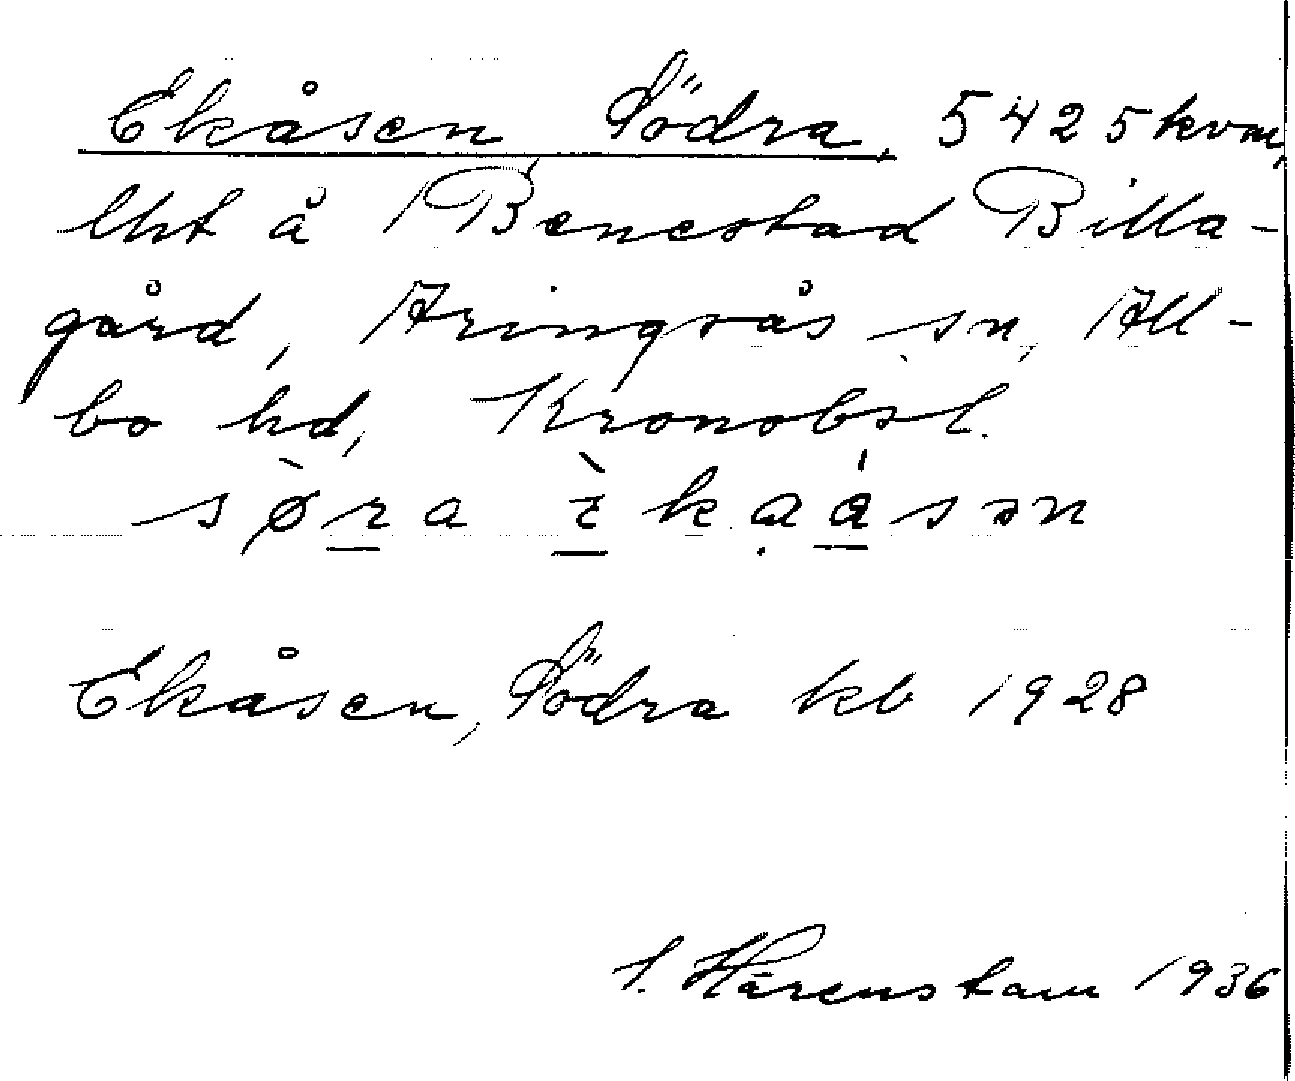 Ekåsen Södra, 5425 kvm,
lht å Benestad Billa-
gård, Aringsås sn, All-
bo hd, Kronobsl.
Ekåsen, Södra kb 1928
S. Härenstam 1936